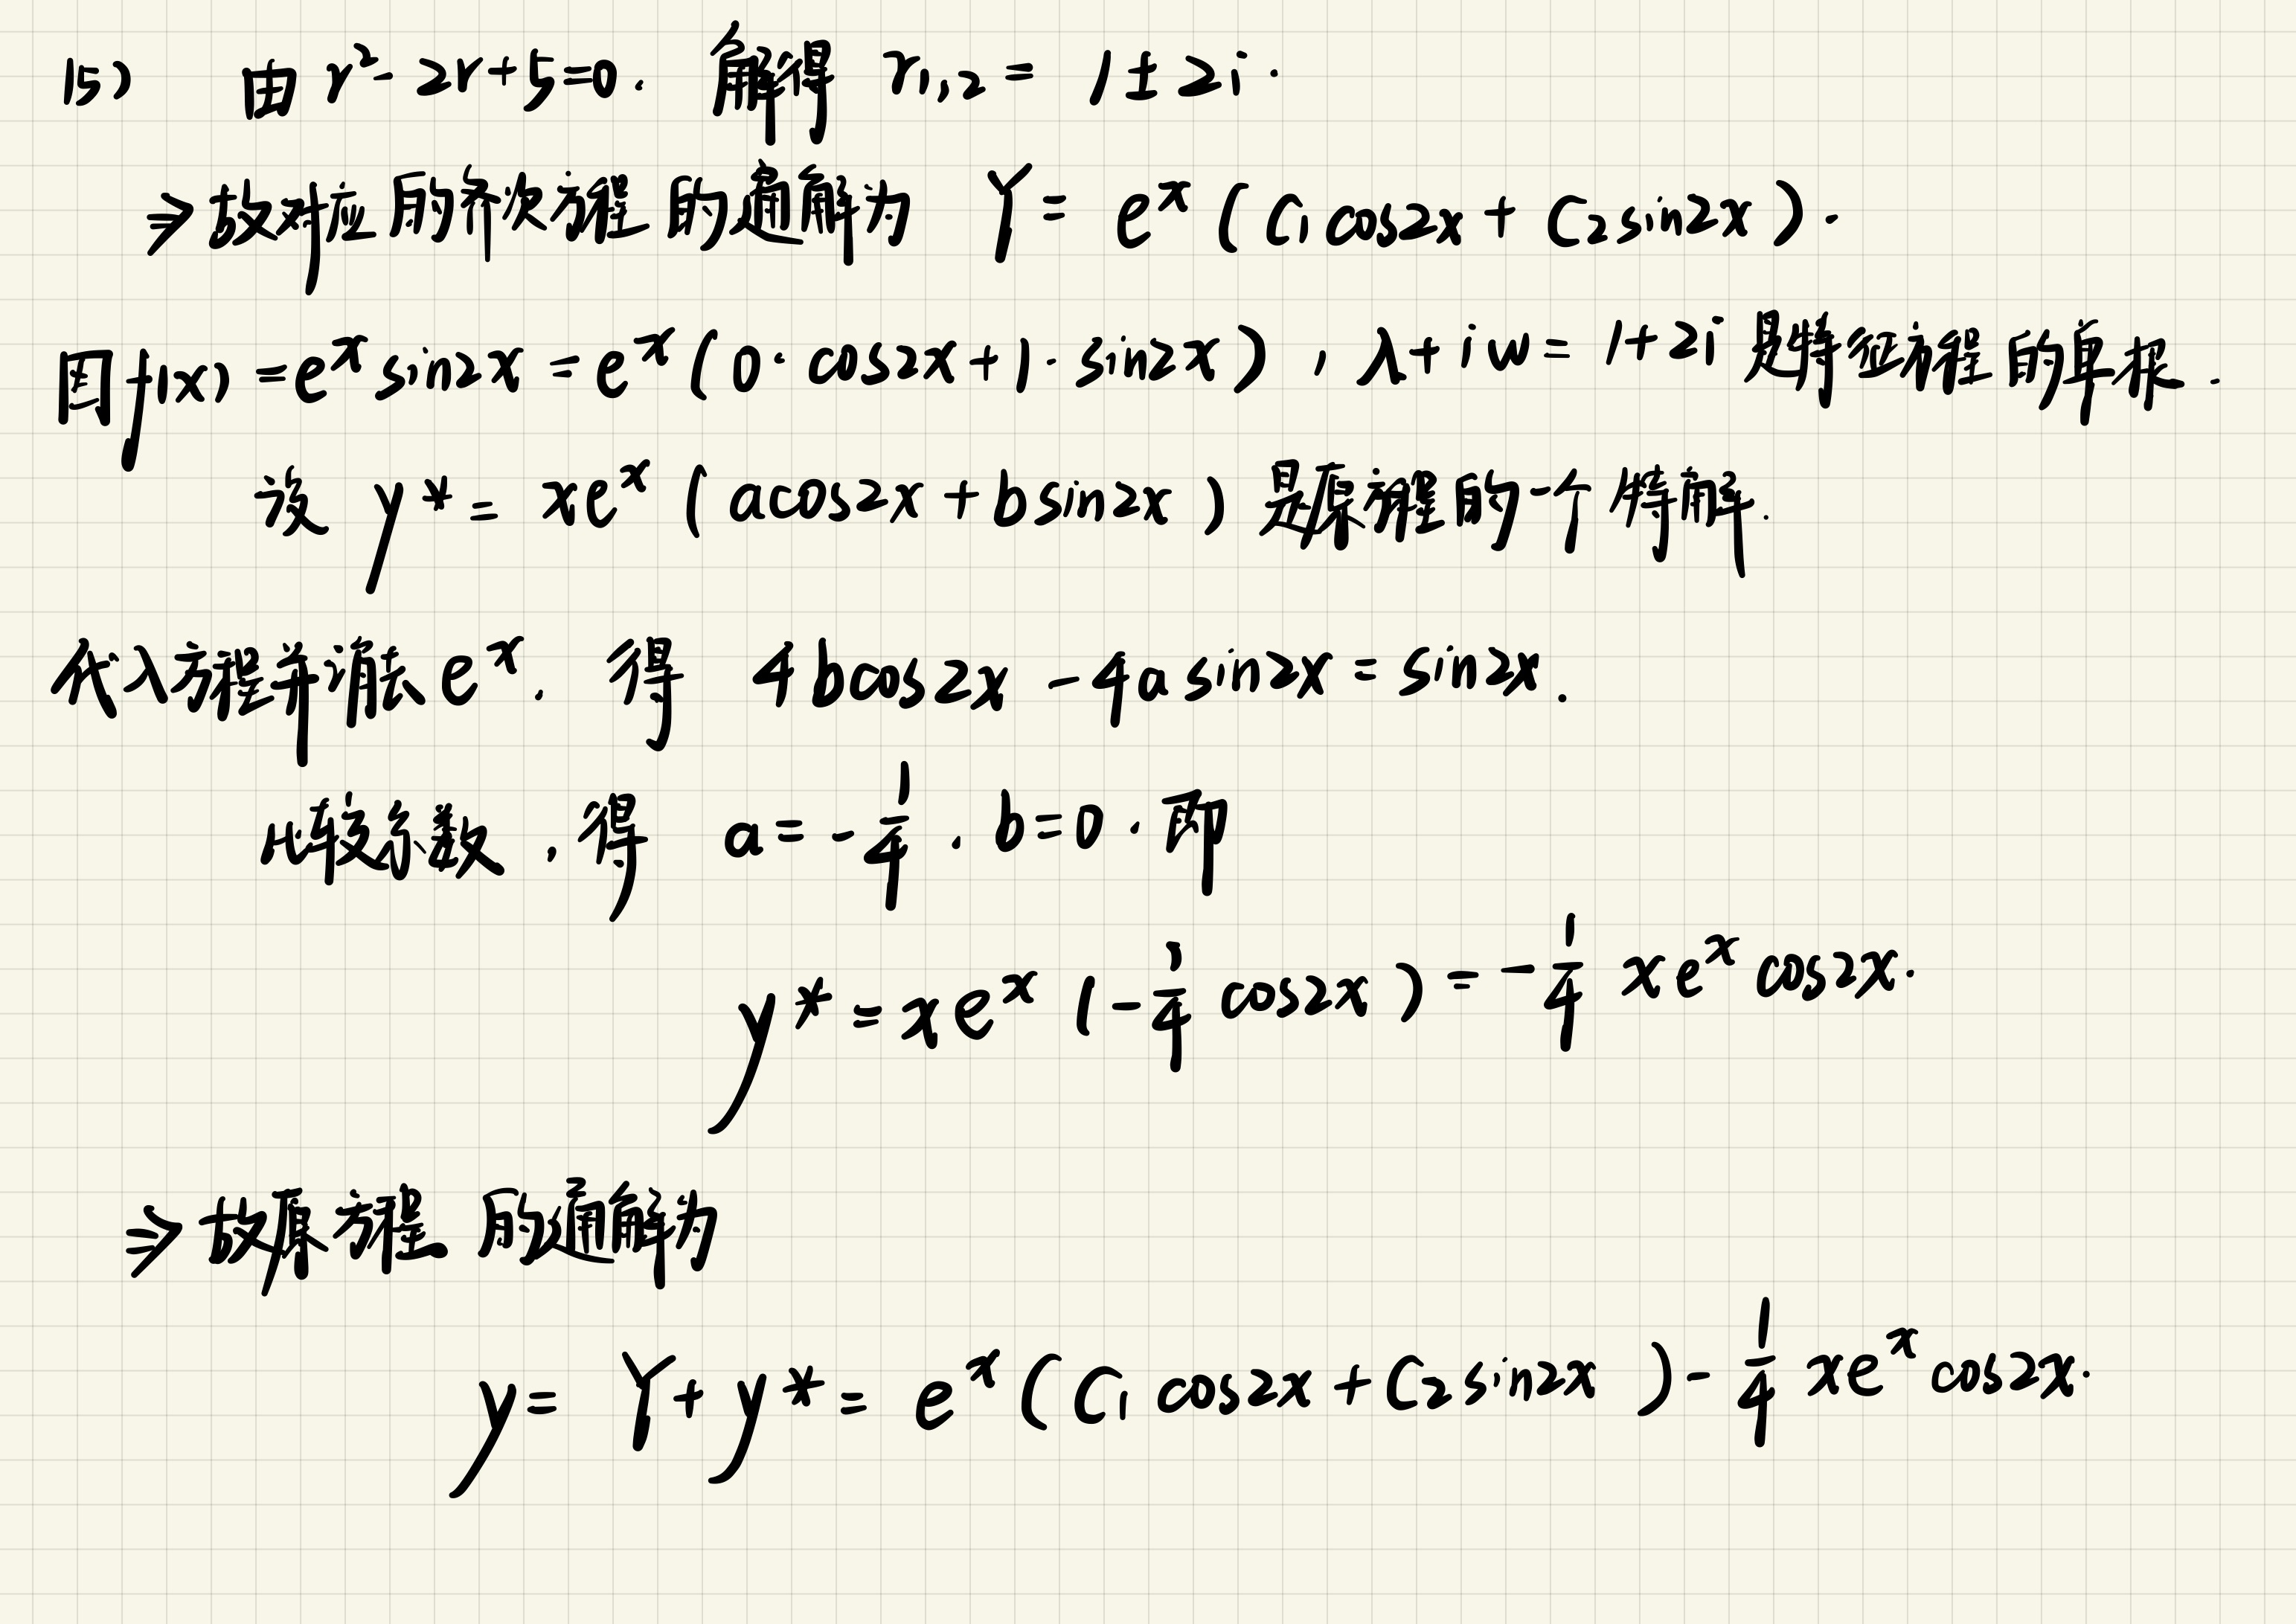 (5) 由 r²-2r+5=0. 解得 r₁,₂ = 1±2i.
⇒故对应的齐次方程的通解为 Y = eˣ(C₁cos2x + C₂sin2x).
因f(x)=eˣsin2x=eˣ(0·cos2x+1·sin2x), λ+iw=1+2i是特征方程的单根.
设 y* = xeˣ(acos2x+bsin2x)是原方程的一个特解.
代入方程并消去eˣ, 得 4bcos2x-4asin2x=sin2x.
比较系数,得 a=-1/4, b=0. 即
y*=xeˣ(-1/4 cos2x)=-1/4 xeˣcos2x.
⇒故原方程的通解为
y=Y+y*=eˣ(C₁cos2x+C₂sin2x)-1/4 xeˣcos2x.